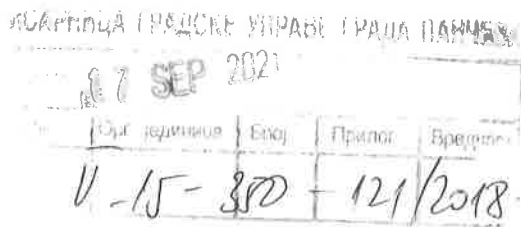 ПИСАРНИЦА ГРАДСКЕ УПРАВЕ ГРАДА ПАНЧЕВА
07 SEP 2021
Орг. јединица Број Прилог Вредност
V-15-350-121/2018-